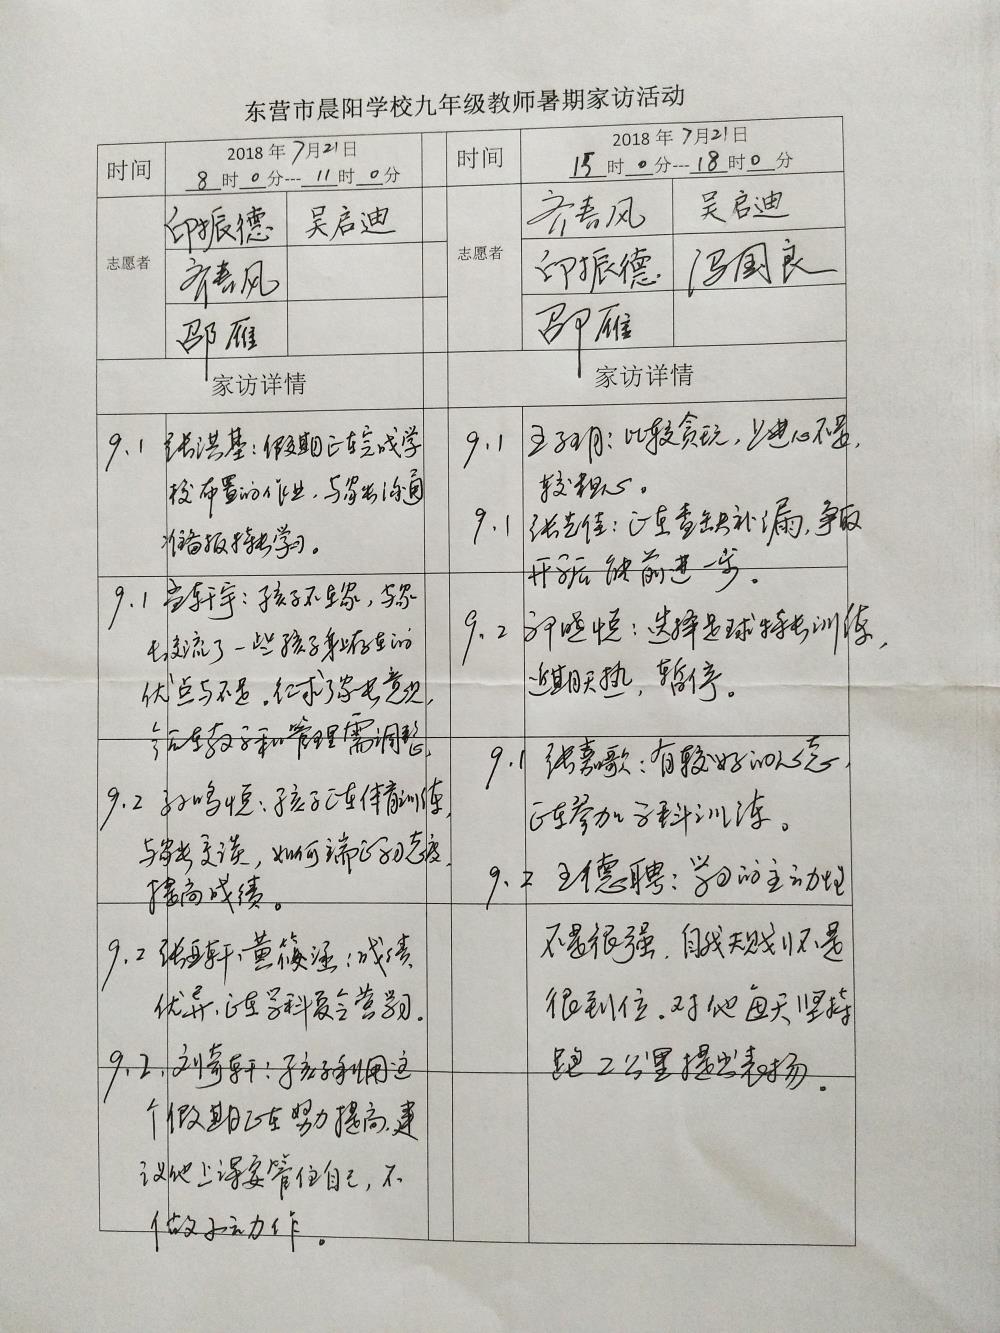 东营市晨阳学校九年级教师暑期家访活动
时间
2018 年 7月21日
8 时 0 分--- 11 时 0 分
志愿者
邱振德 吴启迪
齐春风
邵雁
家访详情
9.1 张洪基：假期正在完成学
校布置的作业，与家长沟通
准备报特长学习。
9.1 轩宇：孩子不在家，与家
长交流了一些孩子身上存在的
优点与不足。征求了家长意见，
在教子和管理需调整。
9.2 孙鸣恒：孩子正在体育训练，
与家长交谈，如何端正学习态度，
提高成绩。
9.2 张轩、黄筱涵：成绩
优异，正在学科夏令营学习。
9.2. 刘奇轩：孩子利用这
个假期正在努力提高，建
议他上课要管住自己，不
做小动作。
时间
2018 年 7月21日
15 时 0 分--- 18 时 0 分
志愿者
齐春风 吴启迪
邱振德 冯国良
邵雁
家访详情
9.1 王子玥：比较贪玩，上进心不足，
较粗心。
9.1 张佳：正在查缺补漏，争取
开学后能前进一步。
9.2 晓恒：选择足球特长训练，
近期天热，暂停。
9.1 张嘉歌：有较好的心态，
正在参加学科训练。
9.2 王德聘：学习的主动性
不是很强，自我规划不是
很到位。对他每天坚持
跑2公里提出表扬。